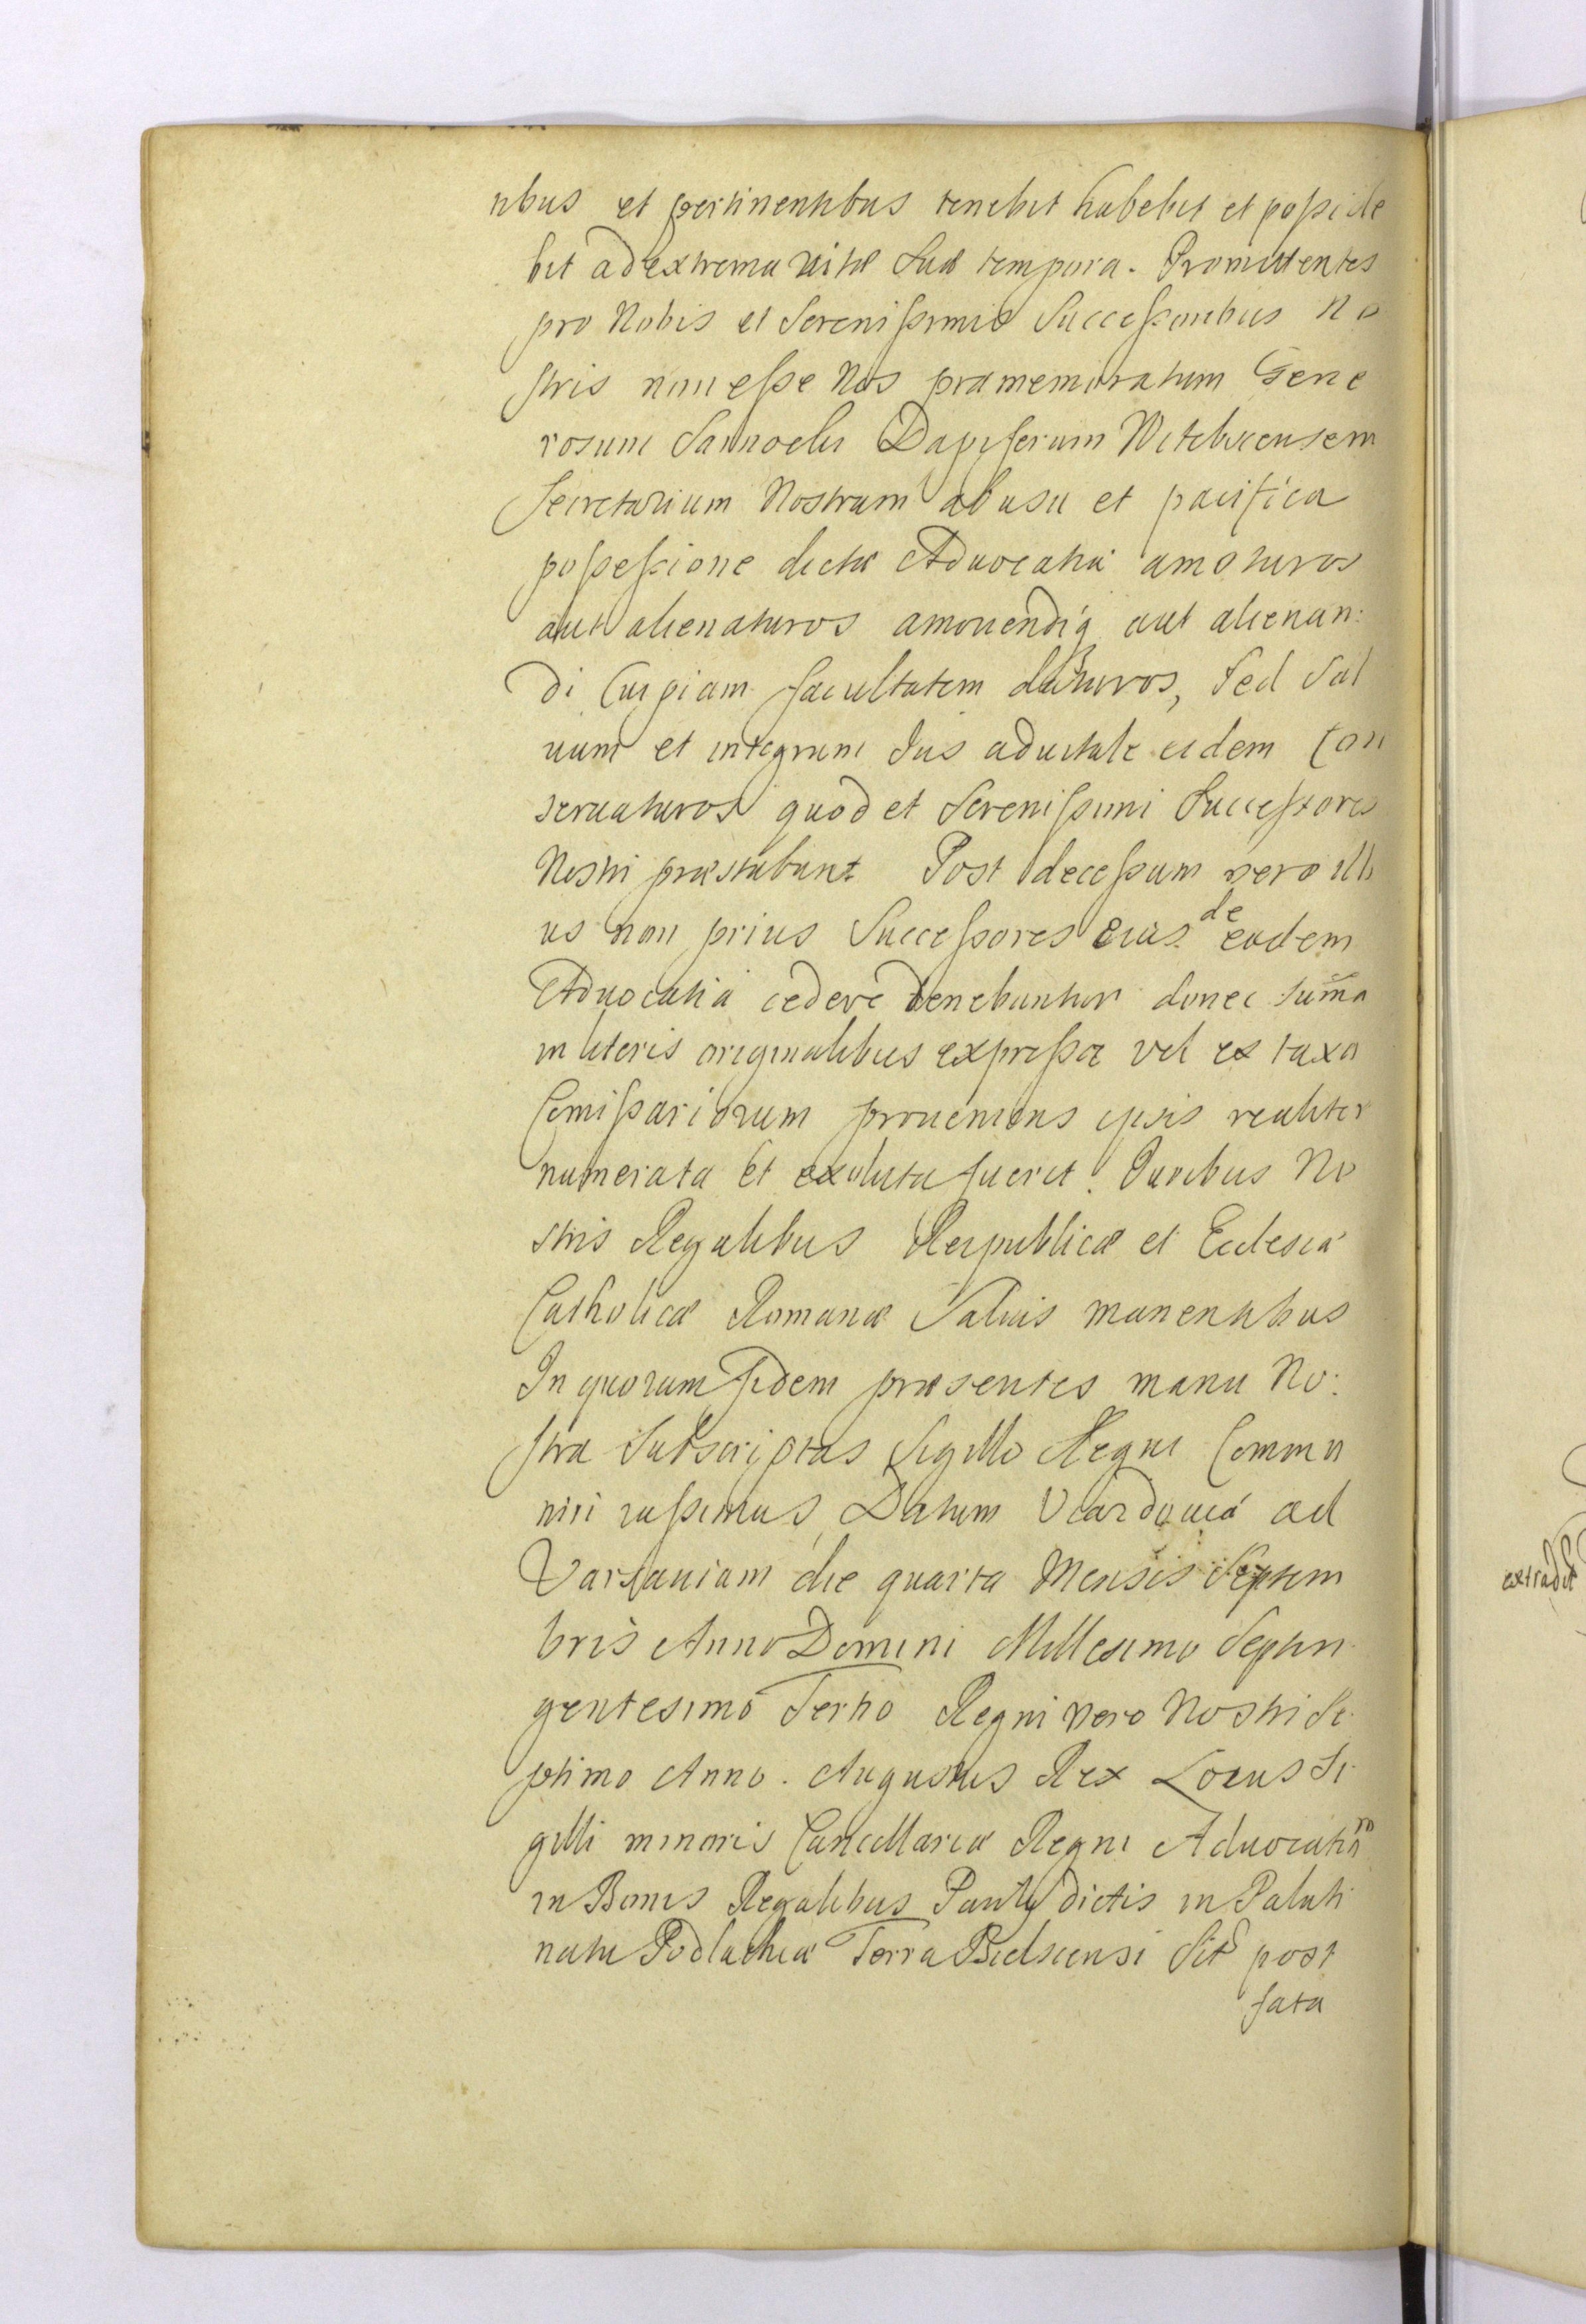 ribus et pertinentibus tenebit habebit et posside
bit ad extrema vitæ suæ tempora. Promittentes
pro Nobis et Serenissimis Successoribus No
stris non esse Nos præmemoratum Gene
rosum Dapiferum Witebscensem
Secretarium Nostrum ab usu et pacifica
possessione dictæ Advocatiæ amoturos
aut alienaturos amovendiq aut alienan:
di Cuipiam facultatem daturos, Sed Sal
uum et integrum Jus aduitale eidem Con
servaturos quod et Serenissimi Successores
Nostri præstabunt Post decessum vero illi
us non prius Successores eius de eadem
Advocatia cedere tenebuntur donec sum̃a
in literis originalibus expressa vel ex taxa
Comissariorum proueniens ipsis realiter
numerata et exoluta fuerit. Juribus No
stris Regalibus Reipublicæ et Ecclesiæ
Catholicæ Romanæ Salvis manentibus
In quorum fidem præsentes manu No:
stra Subscriptas Sigillo Regni Commu
niri iussimus, Datum Uiazdouiæ ad
Varsauiam die quarta Mensis Septem
bris Anno Domini Millesimo Septin
gentesimo Tertio Regni vero Nostri Se
ptimo Anno. Augustus Rex Locus Si
gilli minoris Cancellariæ Regni Aduocatiæ
in Bonis Regalibus dictis in Palati
natu Podlachiæ Terra Bielscensi post
fata
extradit